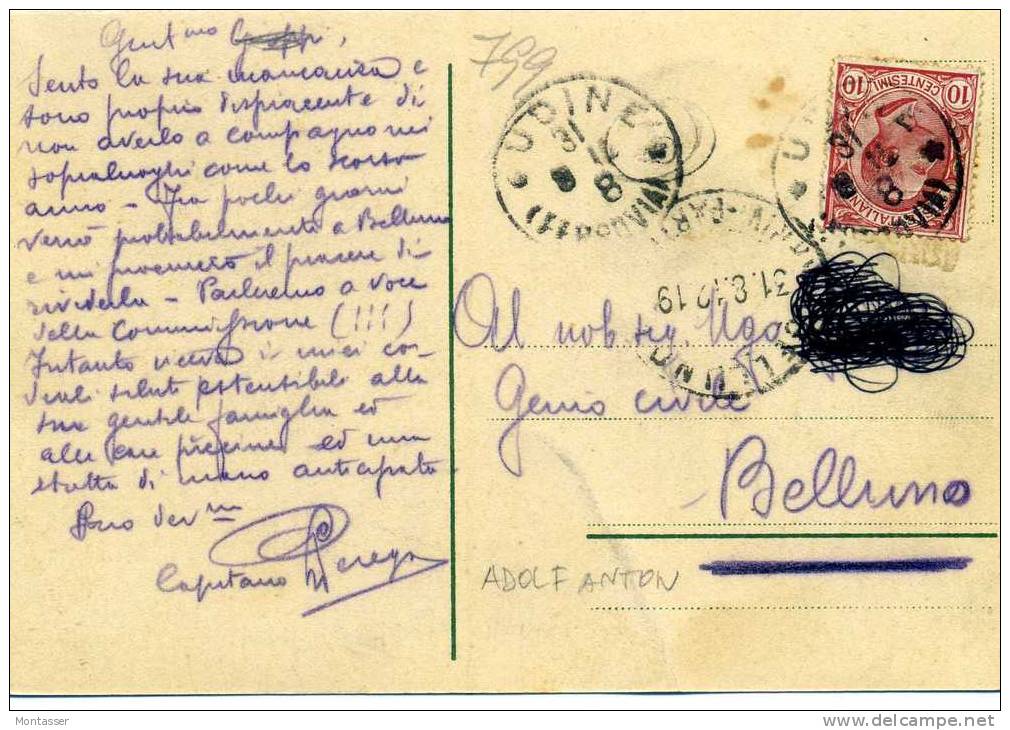 Gent.mo
Sento la sua mancanza e
sono proprio dispiacente di
non averlo a compagno nei
sopraluoghi come lo scorso
anno - Fra pochi giorni
verrò probabilmente a Belluno
e mi procurerò il piacere di
rivederla - Parleremo a voce
della Commissione (!!!)
Intanto riceva i miei cor-
diali saluti estensibili alla
sua gentile famiglia ed
alle care piccine ed una
stretta di mano anticipata
Suo dev.mo
Capitano
799
UDINE
31
8
10 CENTESIMI 10
ITALIANE
31.8.12.19
BELLUNO
Al nob. sig. Ugo
Genio civile
Belluno
ADOLF ANTON
Montasser
www.delcampe.net